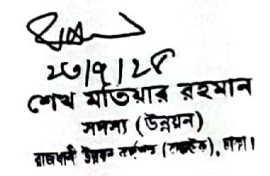 ২৩/৭/২৪
শেখ মতিয়ার রহমান
সদস্য (উন্নয়ন)
রাজধানী উন্নয়ন কর্তৃপক্ষ (রাজউক), ঢাকা।